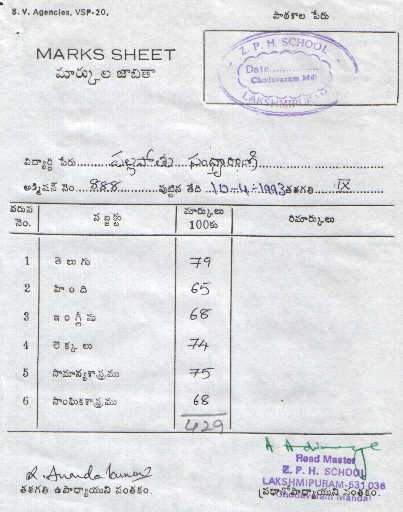 S. V. Agencies, VSP-20.
పాఠశాల పేరు
MARKS SHEET
మార్కుల జాబితా
Z. P. H. SCHOOL
Date
Chodavaram Md
LAKSHMIPUR
విద్యార్థి పేరు సంధ్యారాణి
అడ్మిషన్ నెం. 888 పుట్టిన తేది 10-4-1993 తరగతి IX
వరుస నెం. సబ్జక్టు మార్కులు 100కు రిమార్కులు
1 తెలుగు 79
2 హింది 65
3 ఇంగ్లీషు 68
4 లెక్కలు 74
5 సామాన్యశాస్త్రము 75
6 సాంఘికశాస్త్రము 68
429
K. Ananda Kumar
తరగతి ఉపాధ్యాయుని సంతకం.
Head Master
Z. P. H. SCHOOL
LAKSHMIPURAM-531 036
Chodavaram Mandal
ప్రధానోపాధ్యాయుని సంతకం.